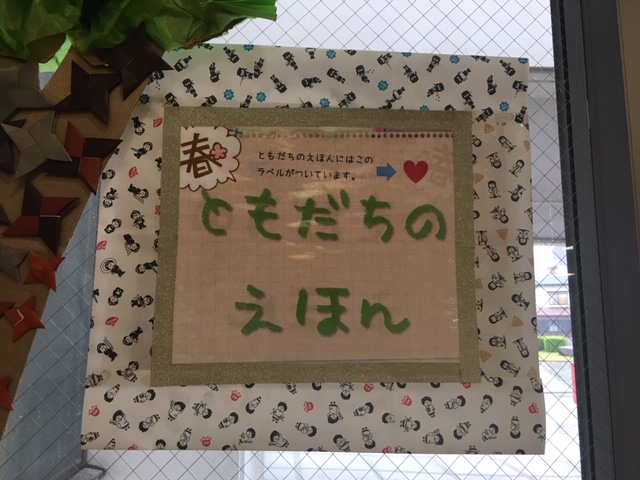 春
ともだちのえほんにはこの
ラベルがついています。
ともだちの
えほん